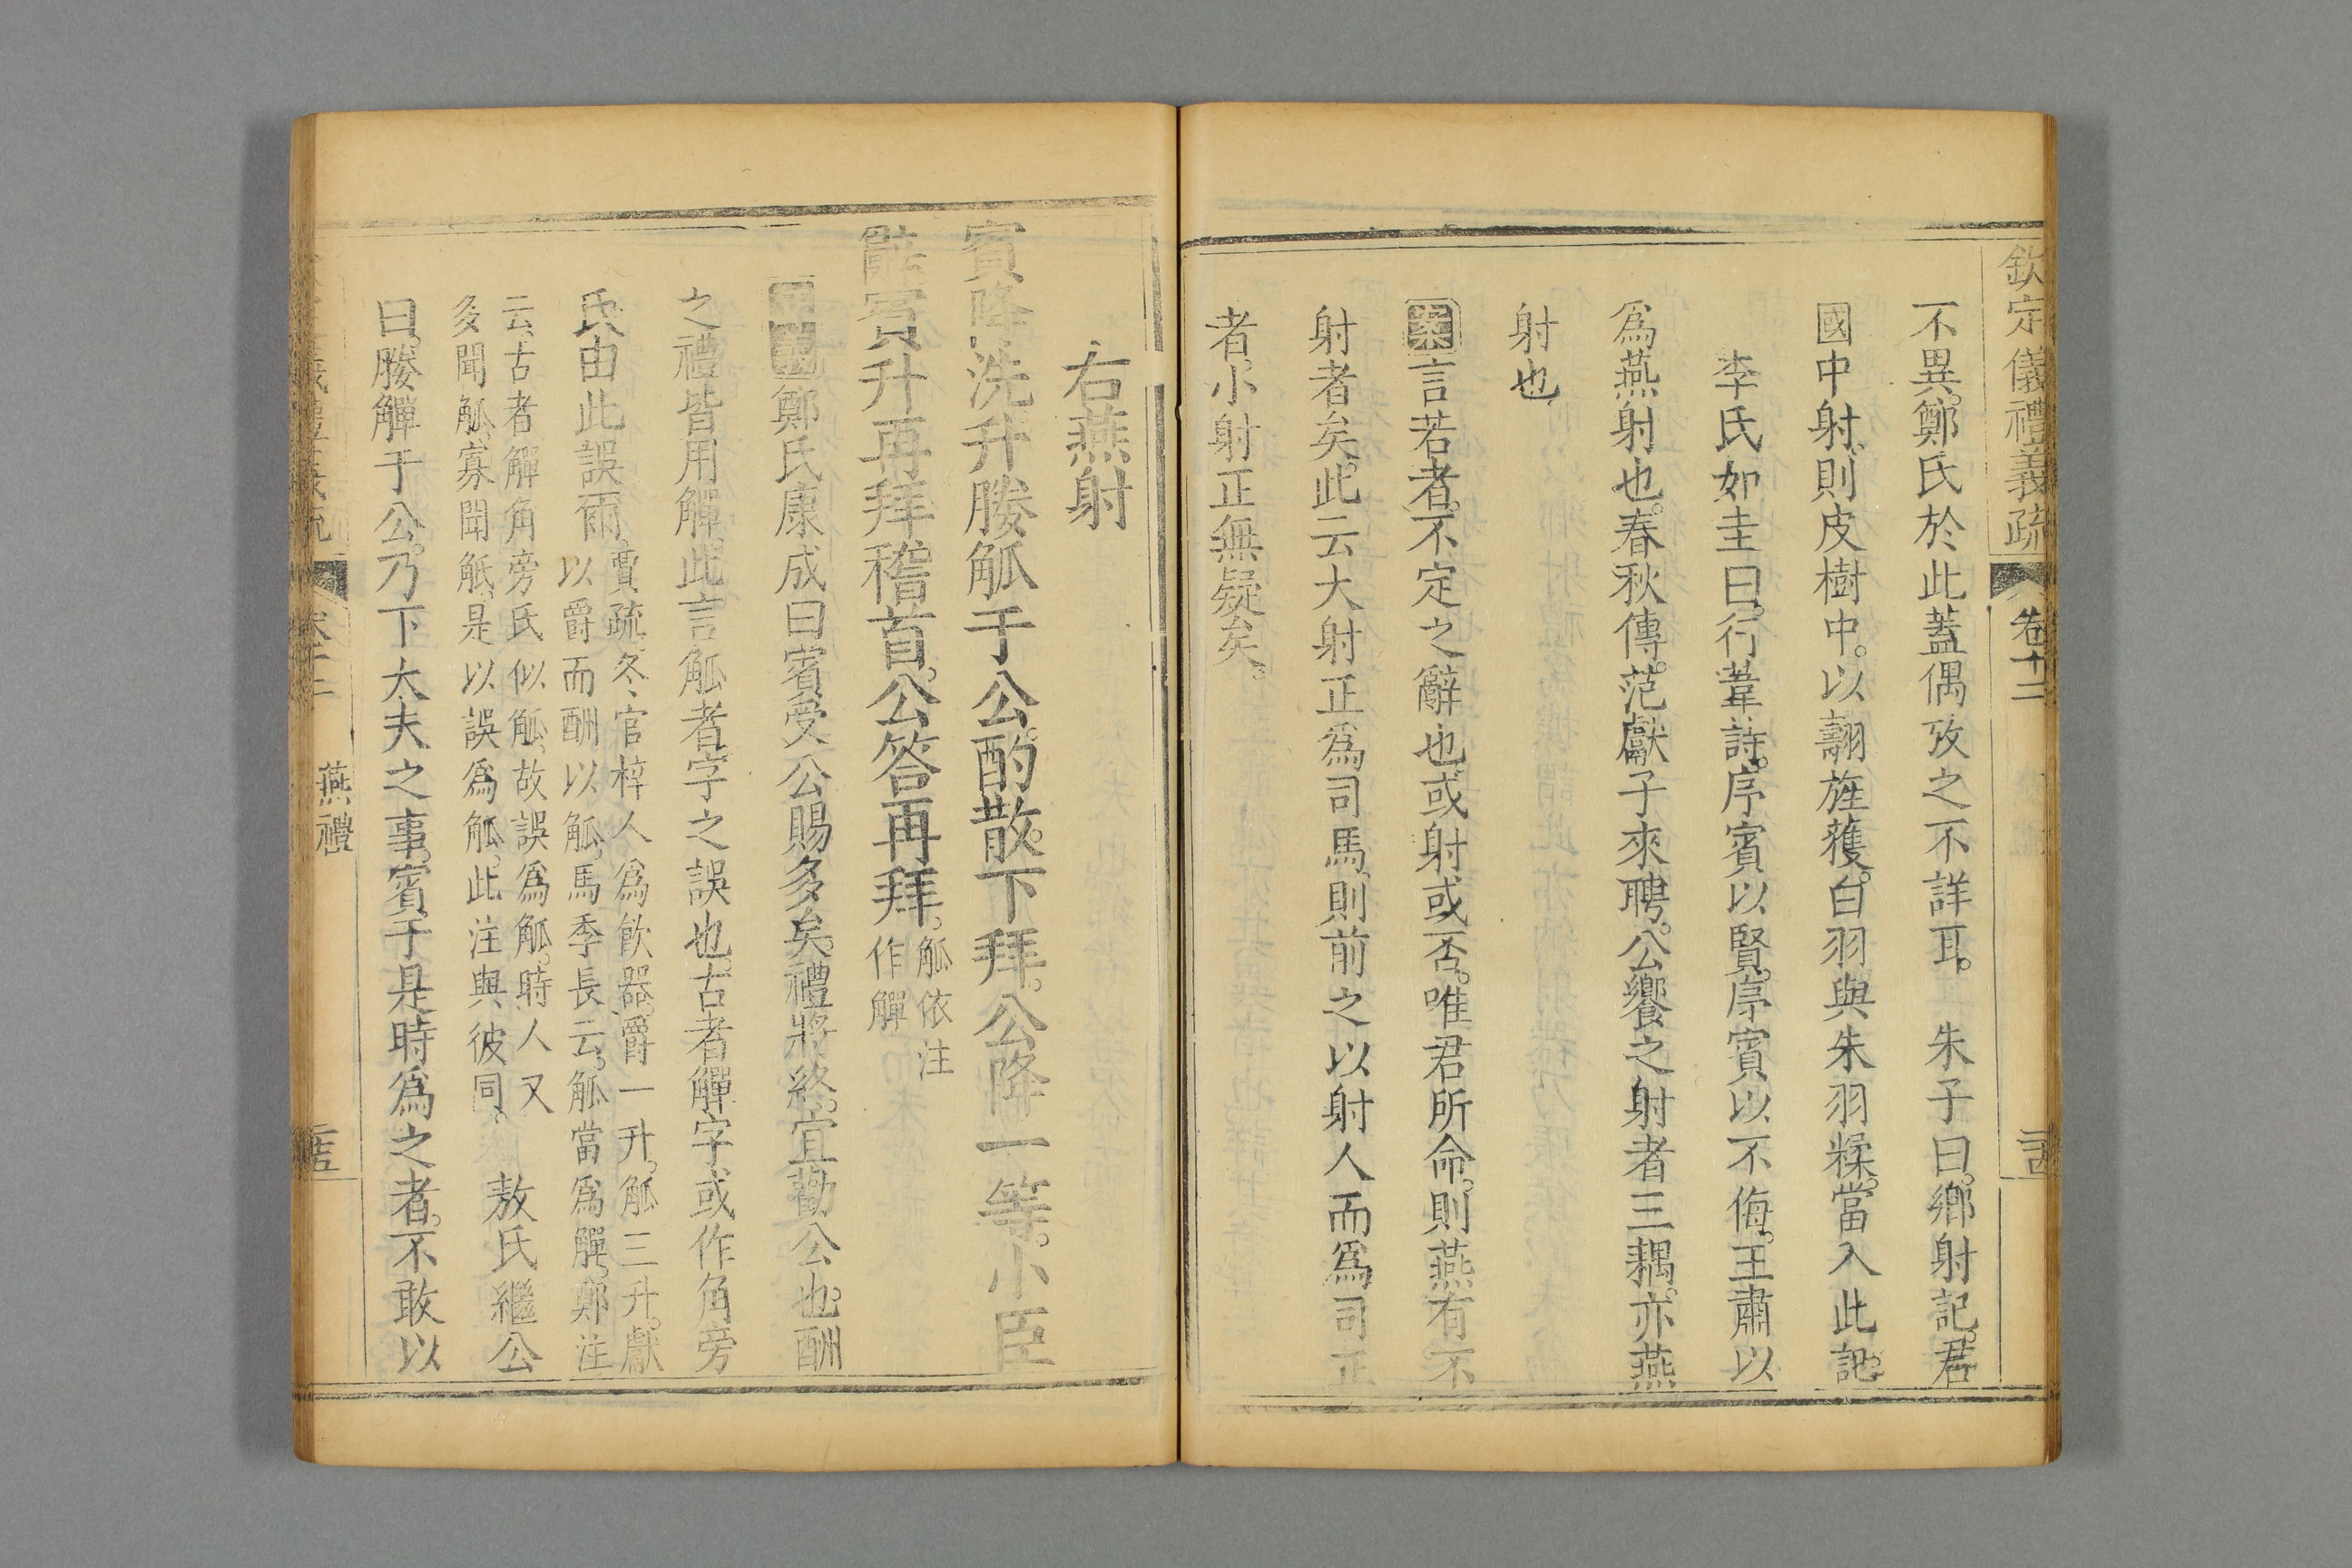 欽定儀禮義疏 卷十二
不異。鄭氏於此蓋偶攷之不詳耳。朱子曰。鄉射記。君
國中射。則皮樹中。以翿旌獲。白羽與朱羽糅。當入此記。
李氏如圭曰。行葦詩。序賓以賢。序賓以不侮。王肅以
爲燕射也。春秋傳。范獻子來聘。公饗之射者三耦。亦燕
射也
案言若者。不定之辭也或射或否。唯君所命。則燕有不
射者矣。此云大射正爲司馬。則前之以射人而爲司正
者。小射正無疑矣。
右燕射
賓降洗升媵觚于公。酌散。下拜。公降一等。小臣
辭賓升再拜稽首。公答再拜。觚依注
作觶
鄭氏康成曰賓受公賜多矣。禮將終。宜勸公也。酬
之禮皆用觶。此言觚者。字之誤也。古者觶字或作角旁
氏由此誤爾。賈疏。冬官梓人爲飮器。爵一升。觚三升。獻
以爵而酬以觚。馬季長云。觚當爲觶。鄭注
云。古者觶角旁氏似觚。故誤爲觚。時人又
多聞觚。寡聞觝。是以誤爲觚。此注與彼同。敖氏繼公
曰。媵觶于公。乃下大夫之事。賓于是時爲之者。不敢以
燕禮